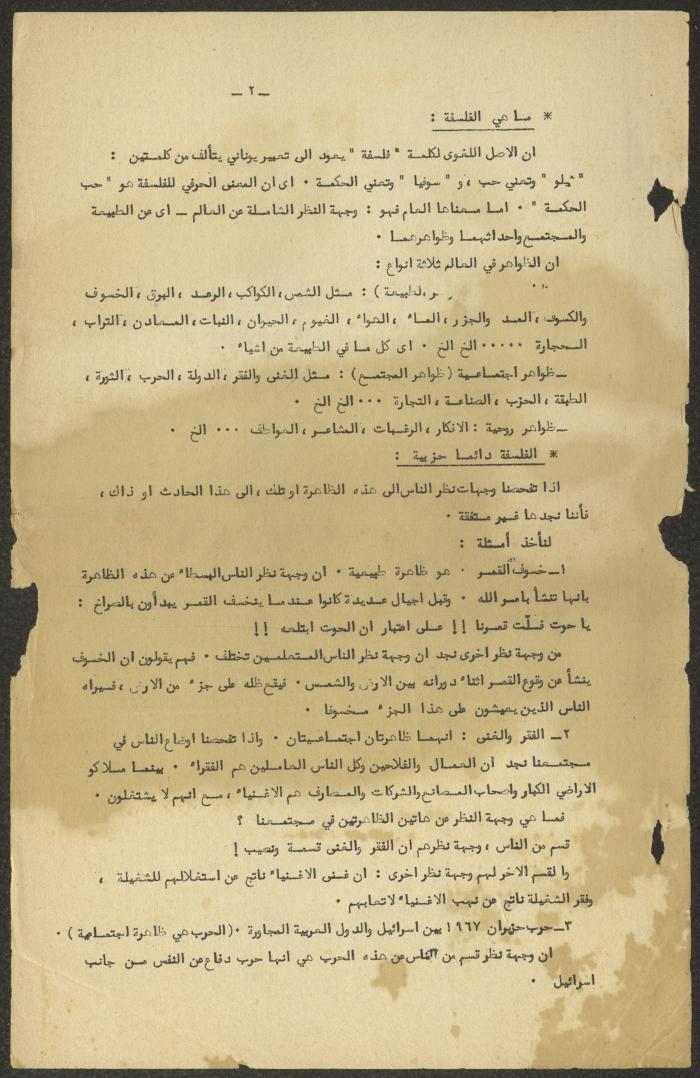 ــ ٢ ــ
* ما هي الفلسفة :
ان الاصل اللغوى لكلمة " فلسفة " يعود الى تعبير يوناني يتألف من كلمتين :
" فيلو " وتعني حب ، و " سوفيا " وتعني الحكمة ٠ اى ان المعنى الحرفي للفلسفة هو " حب
الحكمة " ٠ اما معناها العام فهو : وجهة النظر الشاملة عن العالم ــ اى عن الطبيعة
والمجتمع واحداثهما وظواهرهما ٠
ان الظواهر في العالم ثلاثة انواع :
الطبيعة ) : مثل الشمس ، الكواكب ، الرعد ، البرق ، الخسوف
والكسوف ، المد والجزر ، الماء ، الهواء ، الغيوم ، الحيوان ، النبات ، المعادن ، التراب ،
الحجارة ٠٠٠٠٠ الخ الخ ٠ اى كل ما في الطبيعة من اشياء ٠
ــ ظواهر اجتماعية ( ظواهر المجتمع ) : مثل الغنى والفقر ، الدولة ، الحرب ، الثورة ،
الطبقة ، الحزب ، الصناعة ، التجارة ٠٠٠ الخ الخ ٠
ــ ظواهر روحية : الافكار ، الرغبات ، المشاعر ، العواطف ٠٠٠ الخ ٠
* الفلسفة دائما حزبية :
اذا تفحصنا وجهات نظر الناس الى هذه الظاهرة او تلك ، الى هذا الحادث او ذاك ،
فأننا نجدها غير متفقة ٠
لنأخذ أمثلة :
١ــ خسوف القمر ٠ هو ظاهرة طبيعية ٠ ان وجهة نظر الناس البسطاء عن هذه الظاهرة
بانها تنشأ بامر الله ٠ وقبل اجيال عديدة كانوا عندما ينخسف القمر يبدأون بالصراخ :
يا حوت فلّت قمرنا !! على اعتبار ان الحوت ابتلعه !!
من وجهة نظر اخرى نجد ان وجهة نظر الناس المتعلمين تختلف ٠ فهم يقولون ان الخسوف
ينشأ عن وقوع القمر اثناء دورانه بين الارض والشمس ٠ فيقع ظله على جزء من الارض ، فيراه
الناس الذين يعيشون على هذا الجزء مخسوفا ٠
٢ــ الفقر والغنى : انهما ظاهرتان اجتماعيتان ٠ واذا تفحصنا اوضاع الناس في
مجتمعنا نجد ان العمال والفلاحين وكل الناس العاملين هم الفقراء ٠ بينما ملاكو
الاراضي الكبار واصحاب المصانع والشركات والمصارف هم الاغنياء ، مع انهم لا يشتغلون ٠
فما هي وجهة النظر عن هاتين الظاهرتين في مجتمعنا ؟
قسم من الناس ، وجهة نظرهم ان الفقر والغنى قسمة ونصيب !
والقسم الاخر لهم وجهة نظر اخرى : ان غنى الاغنياء ناتج عن استغلالهم للشغيلة ،
وفقر الشغيلة ناتج عن نهب الاغنياء لاتعابهم ٠
٣ــ حرب حزيران ١٩٦٧ بين اسرائيل والدول العربية المجاورة ٠ ( الحرب هي ظاهرة اجتماعية ) ٠
ان وجهة نظر قسم من الناس عن هذه الحرب هي انها حرب دفاع عن النفس من جانب
اسرائيل ٠